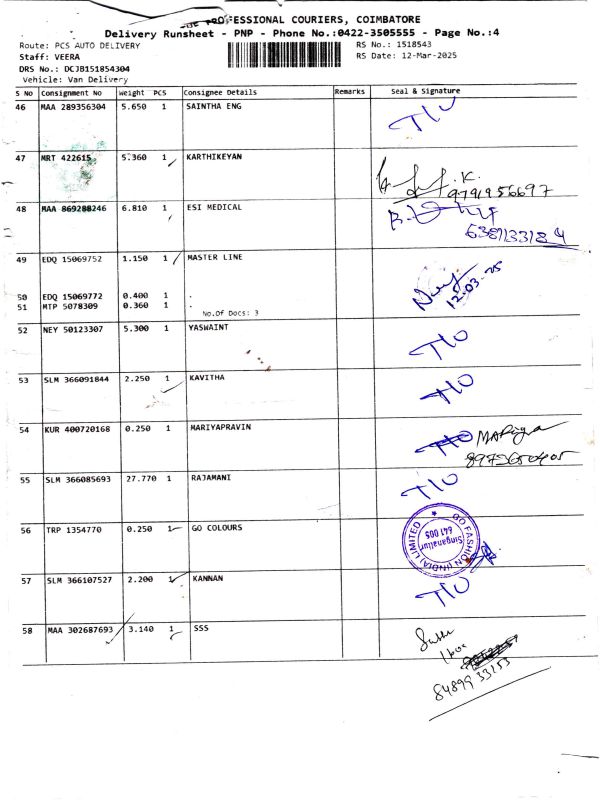 PROFESSIONAL COURIERS, COIMBATORE
Delivery Runsheet - PNP - Phone No.:0422-3505555 - Page No.:4
Route: PCS AUTO DELIVERY RS No.: 1518543
Staff: VEERA RS Date: 12-Mar-2025
DRS No.: DCJB151854304
Vehicle: Van Delivery
S NO Consignment No Weight PCS Consignee Details Remarks Seal & Signature
46 MAA 289356304 5.650 1 SAINTHA ENG T/O
47 MRT 422615 5.360 1 KARTHIKEYAN
K.
9791956697
48 MAA 869288246 6.810 1 ESI MEDICAL
49 EDQ 15069752 1.150 1 MASTER LINE
50 EDQ 15069772 0.400 1 .
12.03.25
51 MTP 5078309 0.360 1 .
No.Of Docs: 3
52 NEY 50123307 5.300 1 YASWAINT T/O
53 SLM 366091844 2.250 1 KAVITHA T/O
54 KUR 400720168 0.250 1 MARIYAPRAVIN T/O
55 SLM 366085693 27.770 1 RAJAMANI T/O
56 TRP 1354770 0.250 1 GO COLOURS
GO FASHION (INDIA) LIMITED
Singanallur
641 005
57 SLM 366107527 2.200 1 KANNAN T/O
58 MAA 302687693 3.140 1 SSS
84899 33153